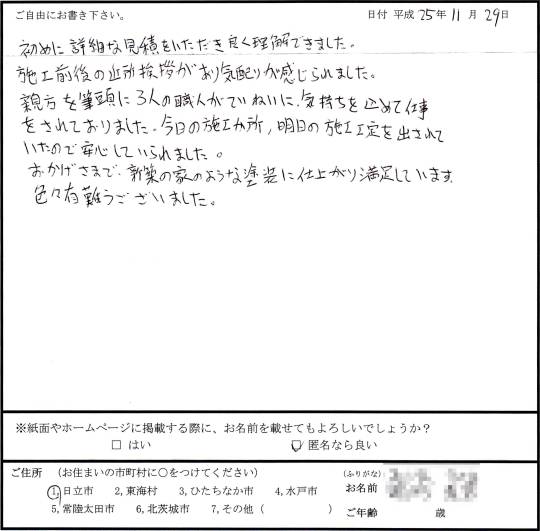 ご自由にお書き下さい。 日付 平成 25年 11月 29日
初めに詳細な見積をいただき良く理解できました。
施工前後の近所挨拶があり気配りが感じられました。
親方を筆頭に3人の職人がていねいに、気持ちを込めて仕事
をされておりました。今日の施工か所，明日の施工工定を出されて
いたので安心していられました。
おかげさまで、新築の家のような塗装に仕上がり満足しています
色々有難うございました。
※紙面やホームページに掲載する際に、お名前を載せてもよろしいでしょうか？
□ はい ☑ 匿名なら良い
ご住所 （お住まいの市町村に○をつけてください） （ふりがな）
1,日立市 2,東海村 3,ひたちなか市 4,水戸市 お名前
5,常陸太田市 6,北茨城市 7,その他（ ） ご年齢 歳